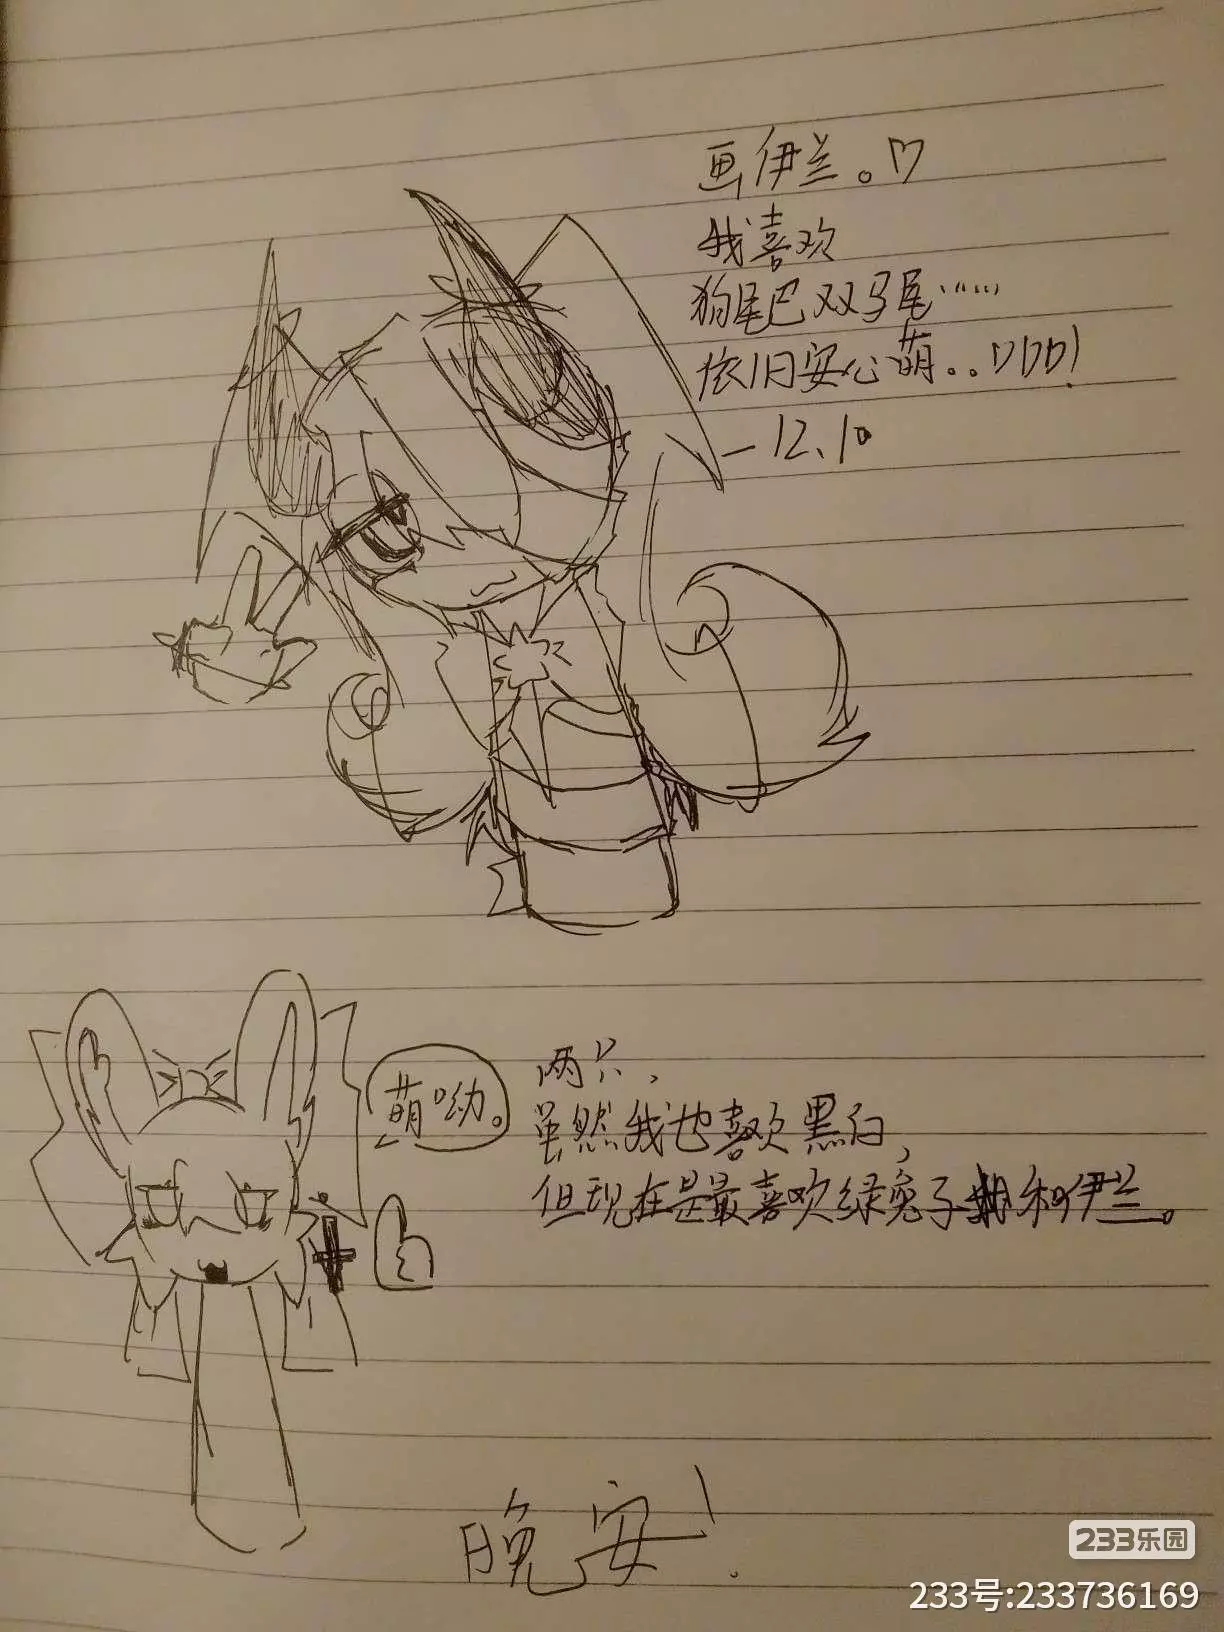 画伊兰。♡
我喜欢
狗尾巴双马尾……
依旧安心萌..♡♡♡!
-12.10
萌呦。
两只，
虽然我也喜欢黑白，
但现在是最喜欢绿兔子和伊兰。
晚安!
233乐园
233号:233736169